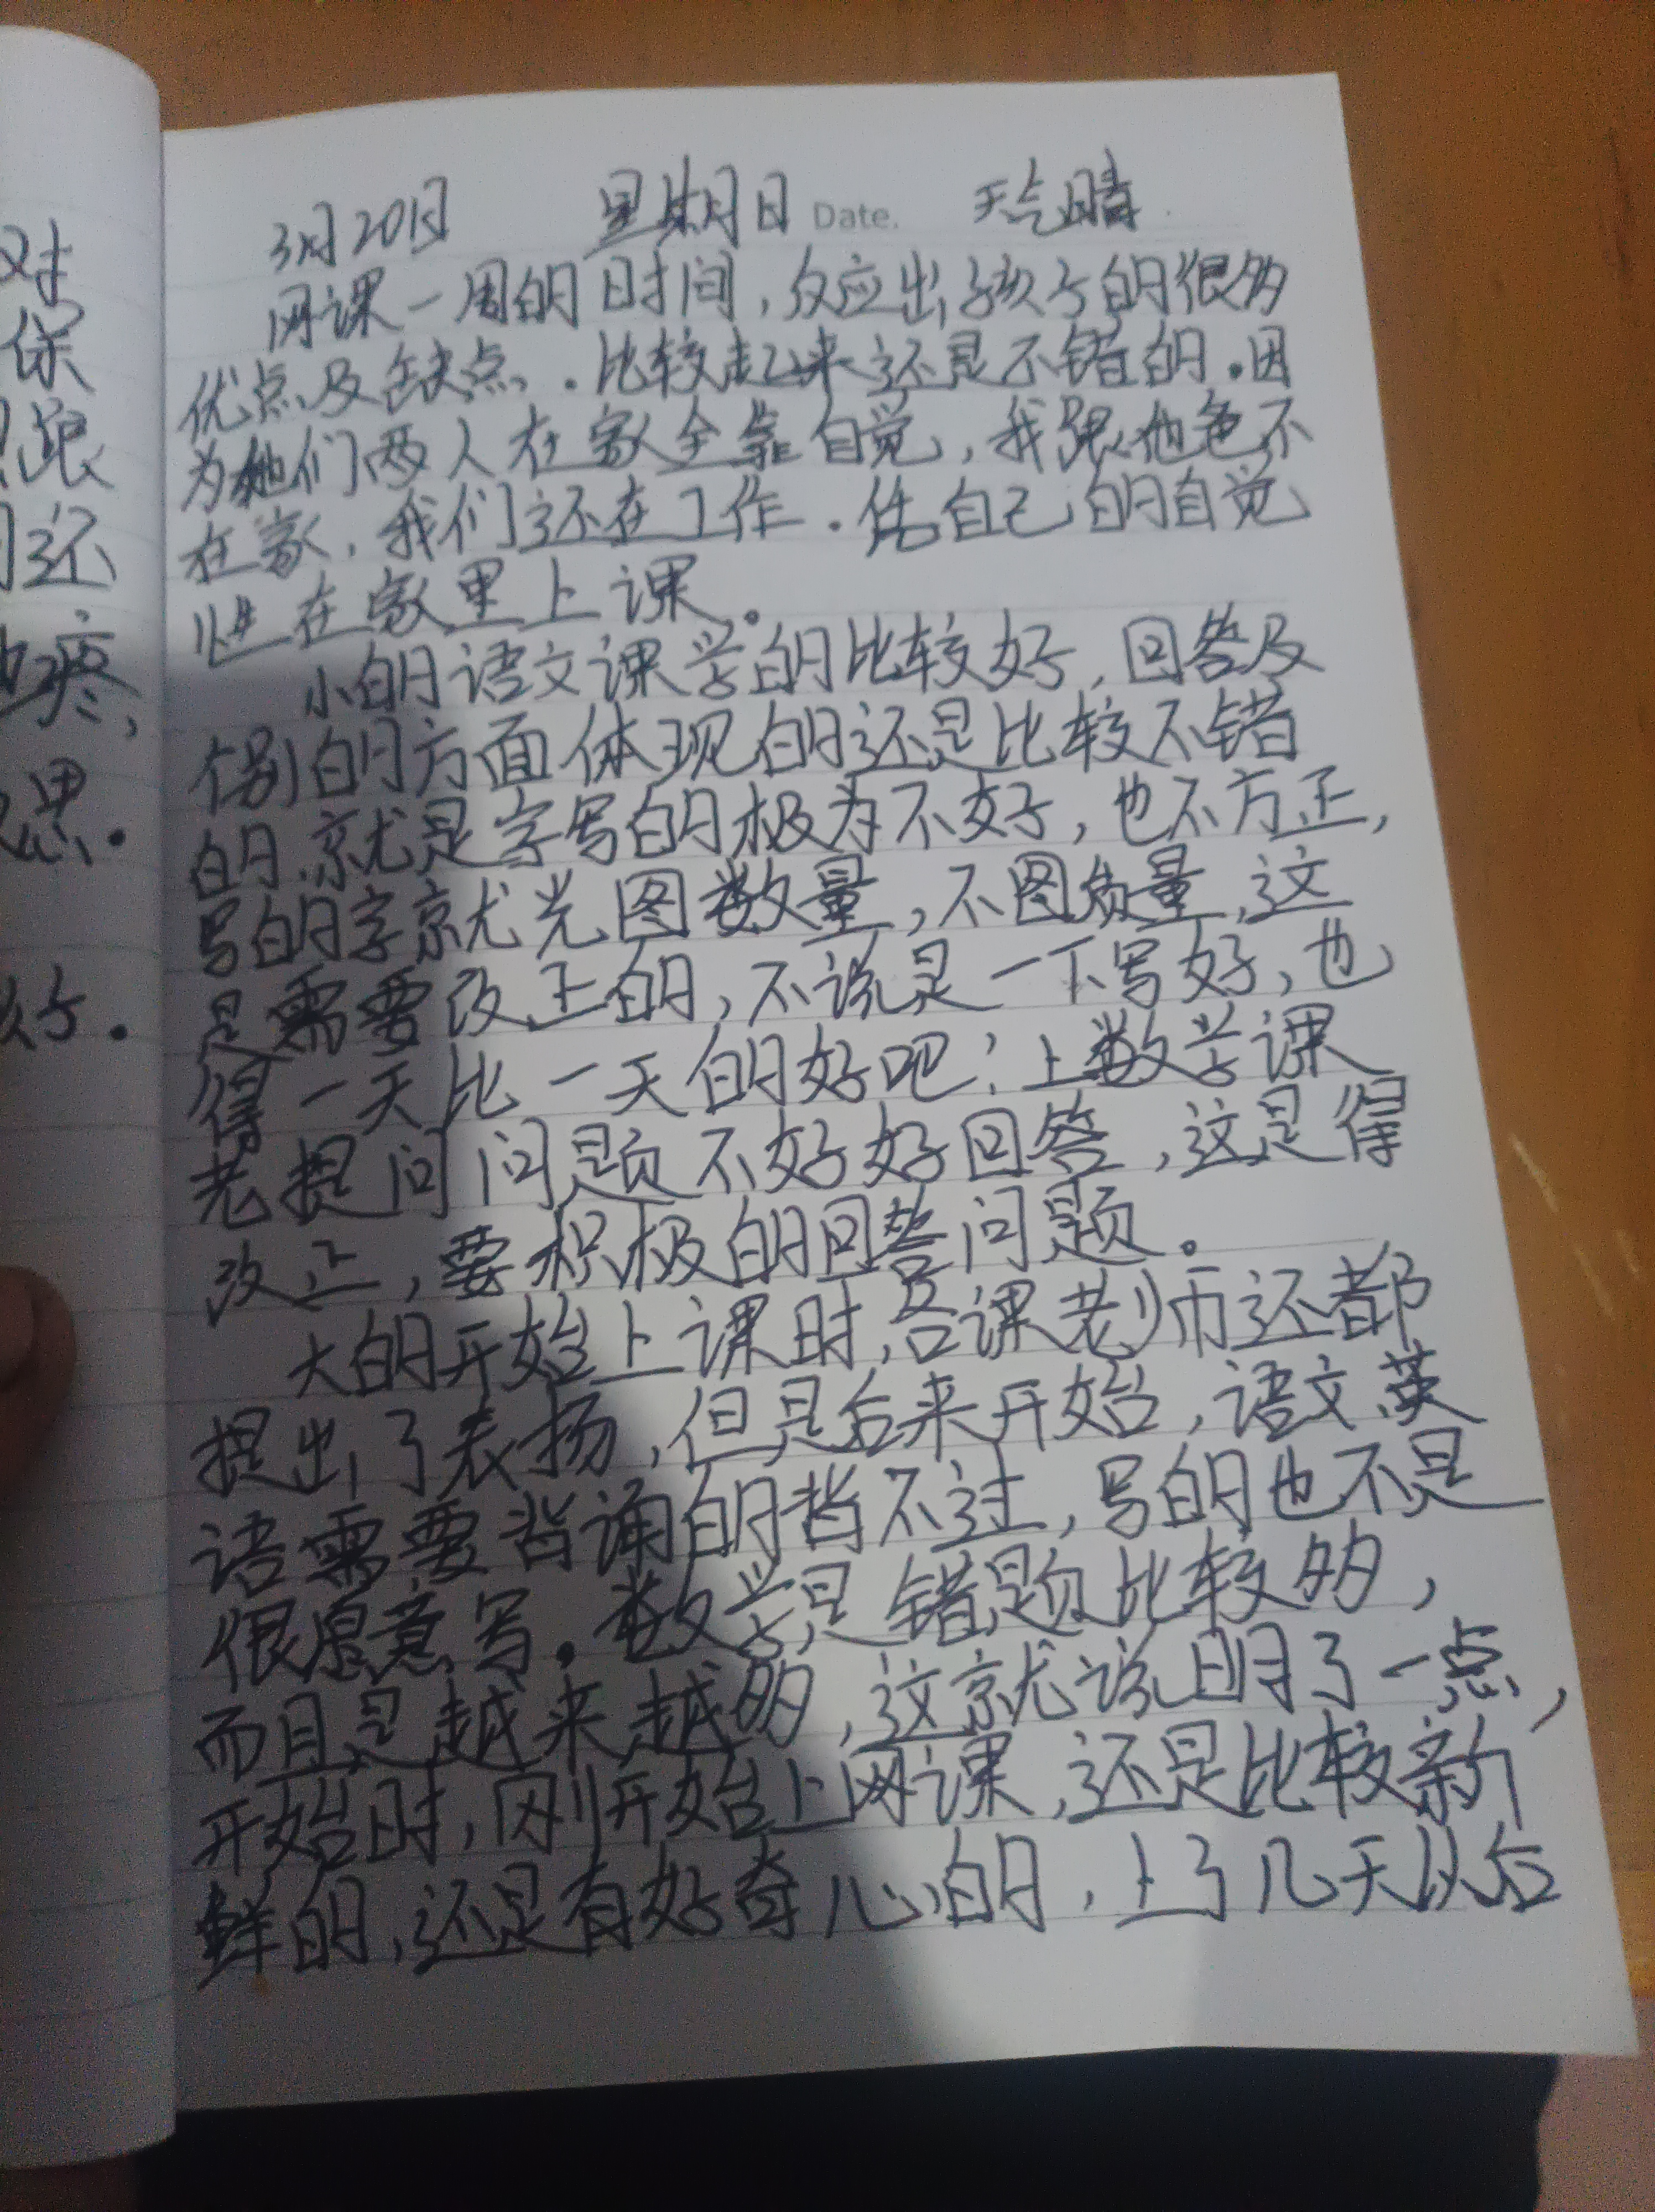 对
保
跟
还
疼,
思.
好.
3月20日 星期日 Date. 天气晴
网课一周的日时间,反应出孩子的很多
优点及缺点,.比较起来还是不错的.因
为她们两人在家全靠自觉,我跟他爸不
在家,我们还在工作.凭自己的自觉
性在家里上课。
小的语文课学的比较好,回答及
别的方面体现的还是比较不错
的.就是字写的极为不好,也不方正,
写的字就光图数量,不图质量,这
是需要改正的,不说是一下写好,也
得一天比一天的好吧;上数学课
老提问问题不好好回答,这是得
改正,要积极的回答问题。
大的开始上课时,各课老师还都
提出了表扬,但是后来开始,语文、英
语需要背诵的背不过,写的也不是
很愿意写.数学是错题比较多,
而且是越来越多,这就说明了一点,
开始时,刚开始上网课,还是比较新
鲜的,还是有好奇心的,上了几天以后